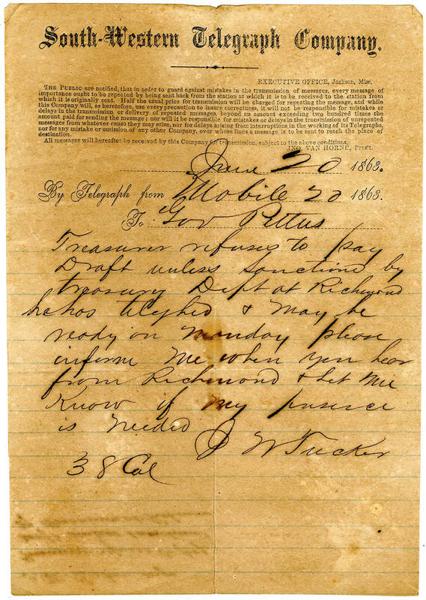 South-Western Telegraph Company.
EXECUTIVE OFFICE, Jackson, Miss.
THE PUBLIC are notified, that in order to guard against mistakes in the transmission of messages, every message of
importance ought to be repeated by being sent back from the station at which it is to be received to the station from
which it is originally sent. Half the usual price for transmission will be charged for repeating the message, and while
this Company will, as heretofore, use every precaution to insure correctness, it will not be responsible for mistakes or
delays in the transmission or delivery of repeated messages, beyond an amount exceeding two hundred times the
amount paid for sending the message; nor will it be responsible for mistakes or delays in the transmission of unrepeated
messages from whatever cause they may arise, nor for delays arising from interruptions in the working of its Telegraphs,
nor for any mistake or omission of any other Company, over whose lines a message is to be sent to reach the place of
destination.
All messages will hereafter be received by this Company for transmission, subject to the above conditions.
JNO. VAN HORNE, Pres't.
June 20 1863.
By Telegraph from Mobile 20 1863.
To Gov Pettus
Treasurer refuses to pay
Draft unless sanctioned by
treasury Dept at Richmond
he has telghed & may be
ready on Monday please
inform me when you hear
from Richmond & let me
Know if my presece
is needed J W Tucker
38 Col